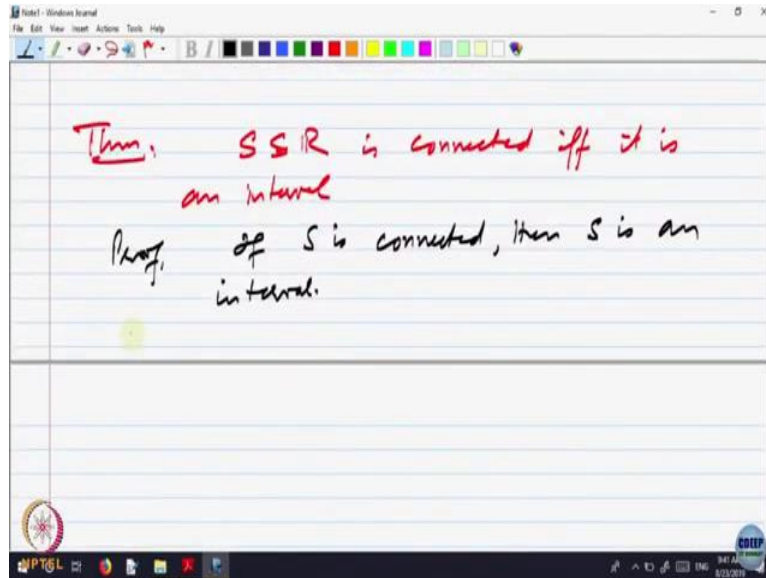 Note1 - Windows Journal
File Edit View Insert Actions Tools Help
B I
Thm. S ⊆ ℝ is connected iff it is
an interval
Proof. If S is connected, then S is an
interval.
NPTEL
CDEEP
ENG
9:41 AM
8/23/2019